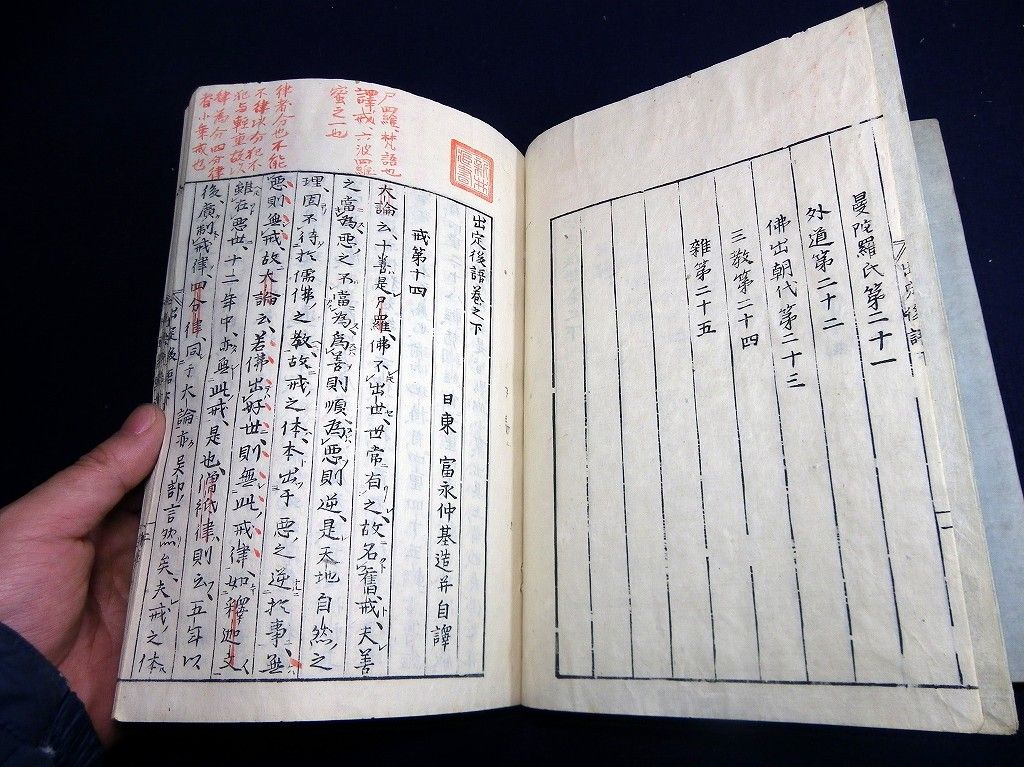 曼陀羅氏第二十一
外道第二十二
佛出朝代第二十三
三教第二十四
雜第二十五
出定後語巻之下
日東 富永仲基造并自譯
戒第十四
大論云、十善是尸羅、佛不出世、世常有之、故名舊戒、夫善
之當為、惡之不當為、為善則順、為惡則逆、是天地自然之
理、固不待於儒佛之教、故戒之体、本出于惡之逆於事、無
惡則無戒、故大論云、若佛出好世、則無此戒律、如釋迦文
雖在惡世、十二年中、亦無此戒、是也、僧祇律、則云、五年以
後廣制戒律、四分律、同于大論、亦異部言然矣、夫戒之体
尸四羅、梵語也
譯戒、六波羅
蜜之一也
律者分也不能
不律以分犯不
犯与輕重故以
律為分四分律
者小乗戒也